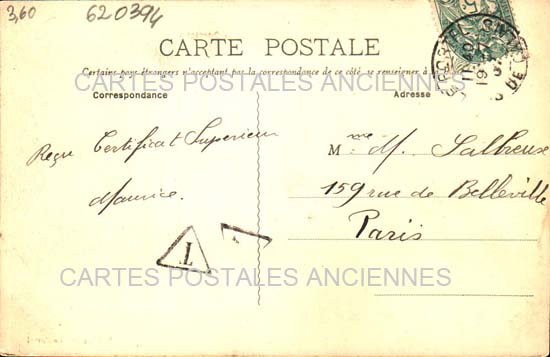 3,60
620394
CARTE POSTALE
Certains pays étrangers n'acceptant pas la correspondance de ce côté, se renseigner à
CARTES POSTALES ANCIENNES
Correspondance
Adresse
Reçu Certificat Supérieur
Maurice.
Mme M.
159 rue de Belleville
Paris
T
CARTES POSTALES ANCIENNES